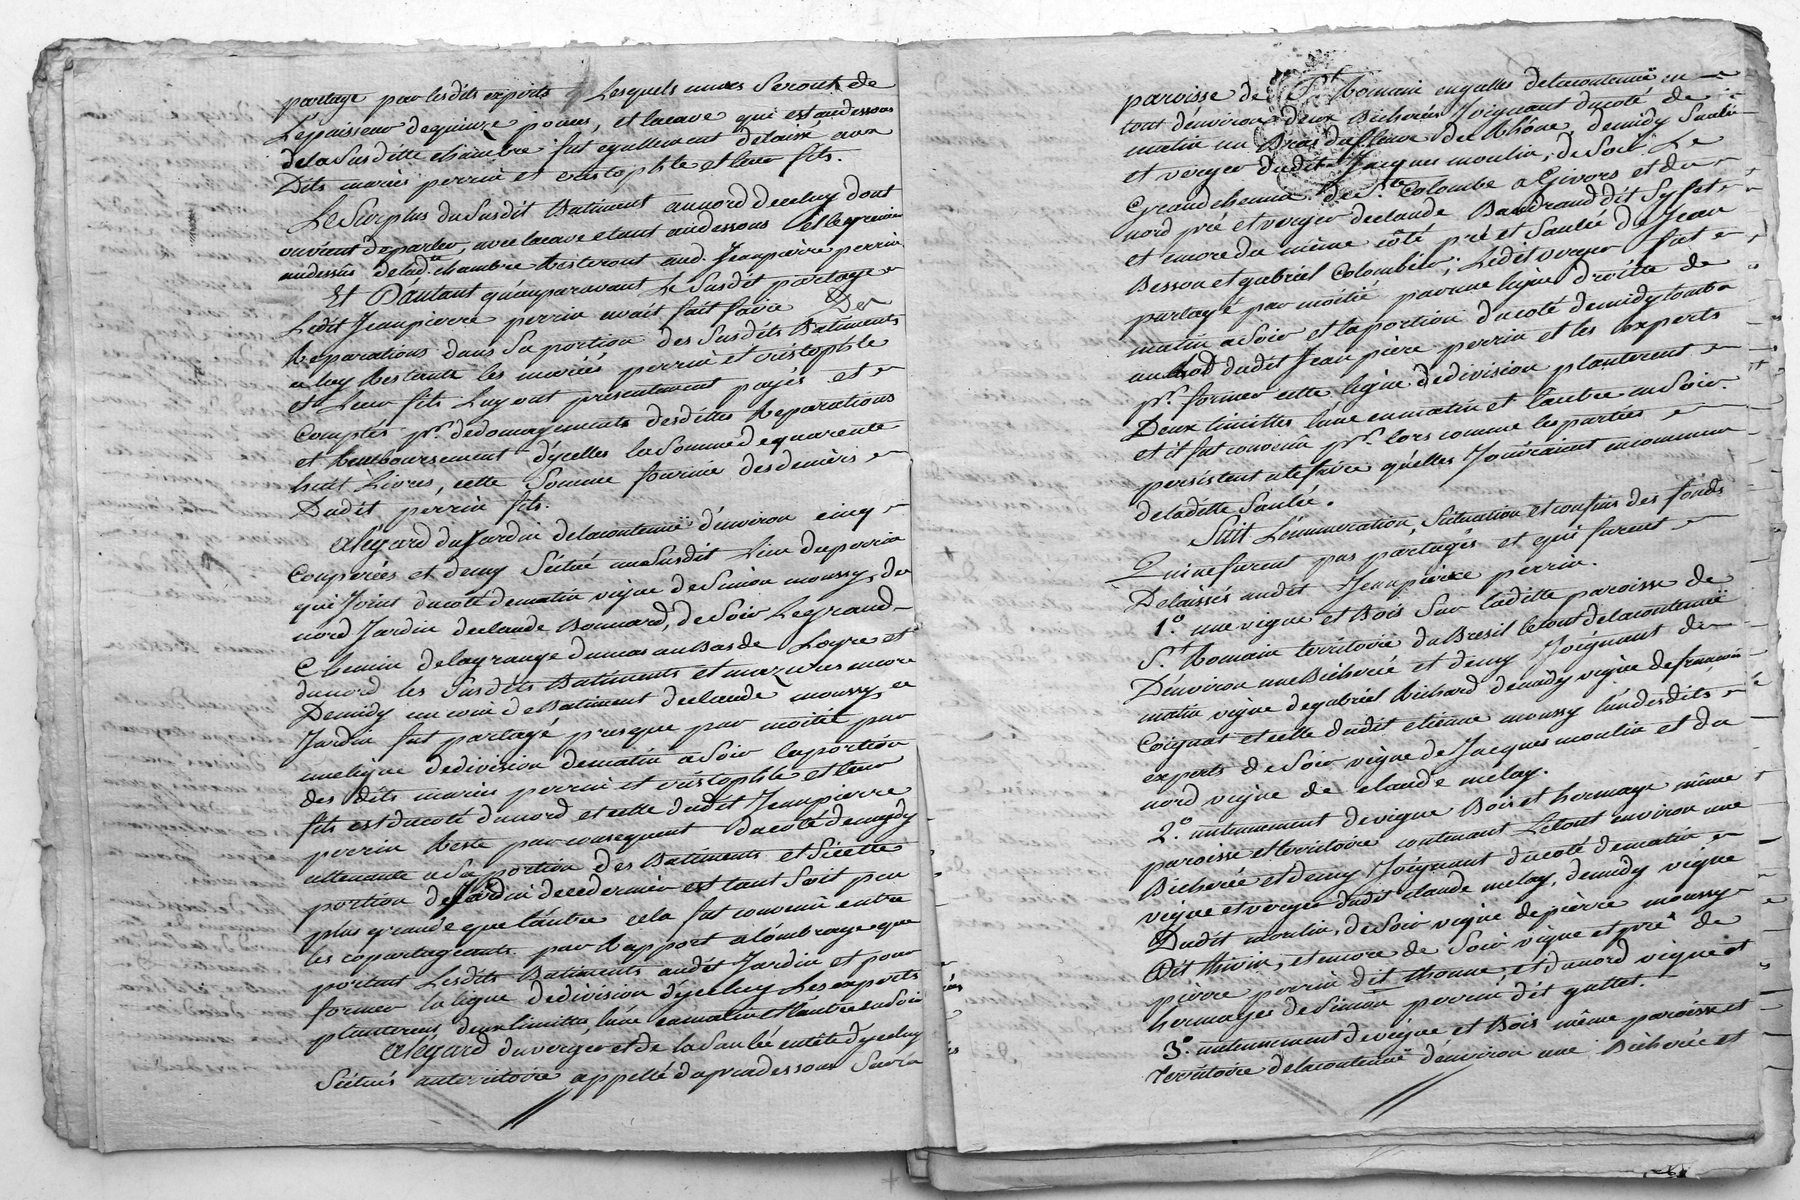 partage par lesdits experts Lesquels murs Seront de
L'épaisseur dequinze pouces, et lacave qui est audessous
dela Susditte chambre fut egallement délaissé aux
Dits mariés perrin et cristophle et leur fils.
Le Surplus du Susdit Batiment aunord deceluy dont
onvient deparler, avec lacave etant audessous et le grenier
audessus delad.te chambre Resteront aud. Jeanpierre perrin
Et D'autant qu'auparavant Le Susdit partage
Ledit Jeanpierre perrin avait fait faire Des
Reparations dans Sa portion des Susdits Batiments
a luy Restante les mariés perrin et cristophle
et Leur fils Luy ont présentement payés et
Comptés pr. dedomagements desdittes Reparations
et Remboursement d'ycelles la Somme dequarente
huit Livres, cette Somme fournie desdeniers
Dudit perrin fils.
alégard du Jardin delacontenuë d'environ cinq
Couperées et demy Scitué au Susdit Lieu duperrin
qui Joint ducoté dematin vigne de Simon moussy, du
nord Jardin declaude Bonnard, de Soir Legrand
Chemin delagrange dumas au Bas de Loyre et
dunord les Susdits Batiments et mazures encore
Demidy un coin de Batiment declaude moussy, ce
Jardin fut partagé presque par moitié par
une ligne dedivision dematin a Soir laportion
des dits mariés perrin et cristophle et leur
fils est ducoté dunord et celle dudit Jeanpierre
perrin Reste par consequent ducoté demidy
attenante a Sa portion des Batiments et Si cette
portion de Jardin decedernier est tant Soit peu
plus grande que l'autre cela fut convenû entre
les copartageants par Rapport a l'ombrage que
portent Lesdits Batiments audit Jardin et pour
former la ligne dedivision d'yceluy Les experts
planterent deux limittes l'une enmatin et l'autre en Soir
alégard du verger et de la Saulée entête d'yceluy
Scitués auterritoire appellé dupra dessous Sur la
paroisse de St. Romain en galles delacontenuë en
tout d'environ deux Bicherées Joignant ducoté de
matin un Bras du fleuve du Rhône, demidy Saulée
et verger dudit Jacques moulin, de Soir Le
Grand chemin de Ste. Colombe a Givors et du
nord pré et verger declaude Baudrand dit Syset
et encore du même côté pré et Saulée de Jean
Besson et gabriel Colombier; Ledit verger fut
partagé par moitié par une ligne droitte de
matin a Soir et laportion ducoté demidy tomba
au lod dudit Jean pierre perrin et les experts
pr. former cette ligne dedivision planterent
Deux limittes l'une enmatin et l'autre en Soir.
et il fut convenû pr. lors comme lesparties
persistent a le faire qu'elles Jouiraient encommun
deladitte Saulée.
Suit L'enumeration, Scituation et confins des fonds
Qui ne furent pas partagés et qui furent
Delaissés audit Jeanpierre perrin.
1.° une vigne et Bois Sur laditte paroisse de
St. Romain territoire du Bresil letout delacontenuë
D'environ une Bicherée et demy Joignant de
matin vigne degabriel Richard demidy vigne de francois
Coignat et celle dudit etienne moussy l'un desdits
experts de Soir vigne de Jacques moulin et du
nord vigne de claude melay.
2.° un tennement de vigne Bois et hermage même
paroisse et territoire contenant Letout environ une
Bicherée et demy Joignant ducoté dematin
vigne et verger dudit claude melay, demidy vigne
Dudit moulin, de Soir vigne depierre moussy
Dit thivin, et encore de Soir vigne et pré de
pierre perrin dit thonne, et dunord vigne et
hermages de Simon perrin dit guttet.
3.° un tennement de vigne et Bois même paroisse et
territoire delacontenuë d'environ une Bicherée et